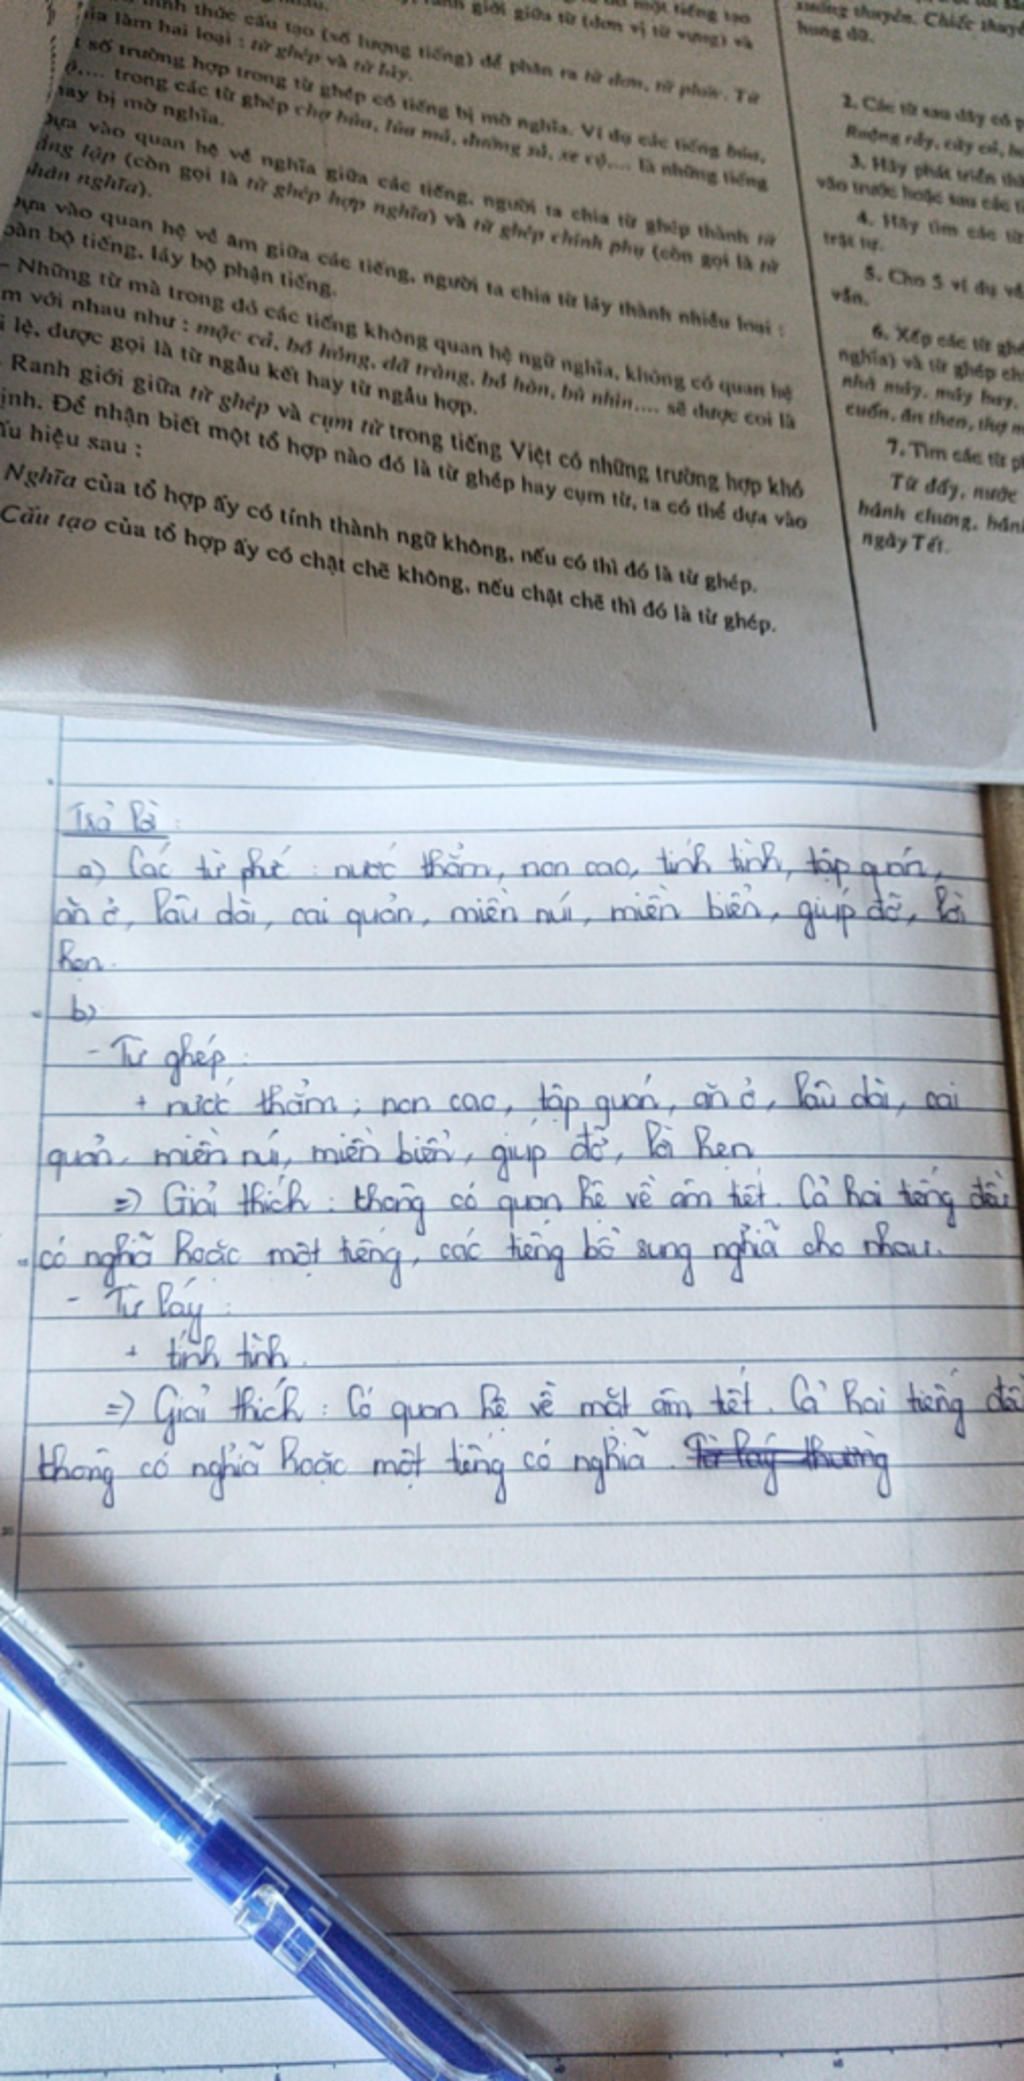 một tiếng tạo
giới giữa từ (đơn vị từ vựng) và
hình thức cấu tạo (số lượng tiếng) để phân ra từ đơn, từ phức. Từ
làm hai loại : từ ghép và từ láy.
số trường hợp trong từ ghép có tiếng bị mờ nghĩa. Ví dụ các tiếng búa,
trong các từ ghép chợ búa, lúa má, đường sá, xe cộ,... là những tiếng
hay bị mờ nghĩa.
vào quan hệ về nghĩa giữa các tiếng, người ta chia từ ghép thành từ
lập (còn gọi là từ ghép hợp nghĩa) và từ ghép chính phụ (còn gọi là từ
nghĩa).
vào quan hệ về âm giữa các tiếng, người ta chia từ láy thành nhiều loại :
bộ tiếng, láy bộ phận tiếng.
- Những từ mà trong đó các tiếng không quan hệ ngữ nghĩa, không có quan hệ
m với nhau như : mặc cả, bồ hóng, dã tràng, bồ hòn, bù nhìn,... sẽ được coi là
lệ, được gọi là từ ngẫu kết hay từ ngẫu hợp.
Ranh giới giữa từ ghép và cụm từ trong tiếng Việt có những trường hợp khó
ịnh. Để nhận biết một tổ hợp nào đó là từ ghép hay cụm từ, ta có thể dựa vào
ấu hiệu sau :
Nghĩa của tổ hợp ấy có tính thành ngữ không, nếu có thì đó là từ ghép.
Cấu tạo của tổ hợp ấy có chặt chẽ không, nếu chặt chẽ thì đó là từ ghép.
xuồng thuyền. Chiếc
hung dữ.
2. Các từ sau đây có
Ruộng rẫy, cây cỏ,
3. Hãy phát triển
vào trước hoặc sau các
4. Hãy tìm các từ
trật tự.
5. Cho 5 ví dụ về
vần.
6. Xếp các từ
nghĩa) và từ ghép
nhà máy, máy bay,
cuốn, ăn then, thợ
7. Tìm các từ
Từ đấy, nước
bánh chưng,
ngày Tết.
Trả lời :
a) Các từ phức : nước thẳm, non cao, tính tình, tập quán,
ăn ở, lâu dài, cai quản, miền núi, miền biển, giúp đỡ, lời
hẹn.
b)
- Từ ghép :
+ nước thẳm, non cao, tập quán, ăn ở, lâu dài, cai
quản, miền núi, miền biển, giúp đỡ, lời hẹn
=> Giải thích : không có quan hệ về âm tiết. Cả hai tiếng đều
có nghĩa hoặc một tiếng, các tiếng bổ sung nghĩa cho nhau.
- Từ láy :
+ tính tình.
=> Giải thích : Có quan hệ về mặt âm tiết. Cả hai tiếng đều
không có nghĩa hoặc một tiếng có nghĩa. Từ láy thường